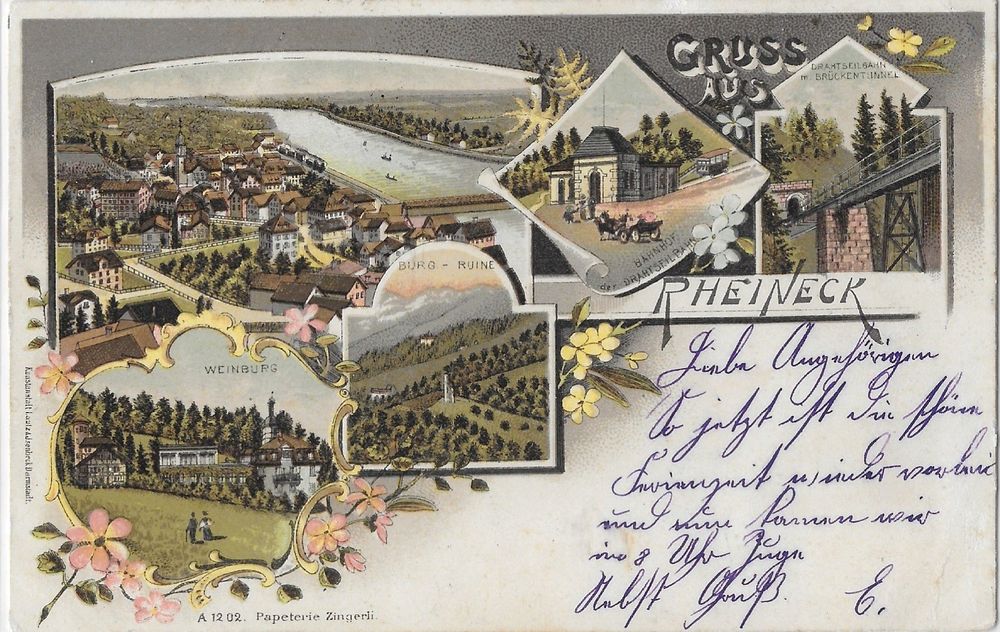 GRUSS
AUS
RHEINECK
DRAHTSEILBAHN
m. BRÜCKENTUNNEL
BAHNHOF
der DRAHTSEILBAHN
BURG - RUINE
WEINBURG
Liebe Angehörigen
So jetzt ist die schöne
Ferienzeit wieder vorbei
und nun kamen wir
8 Uhr Zuge
Nebst Gruß. E.
Kunstanstalt Lautz & Darmstadt.
A 1202. Papeterie Zingerli.